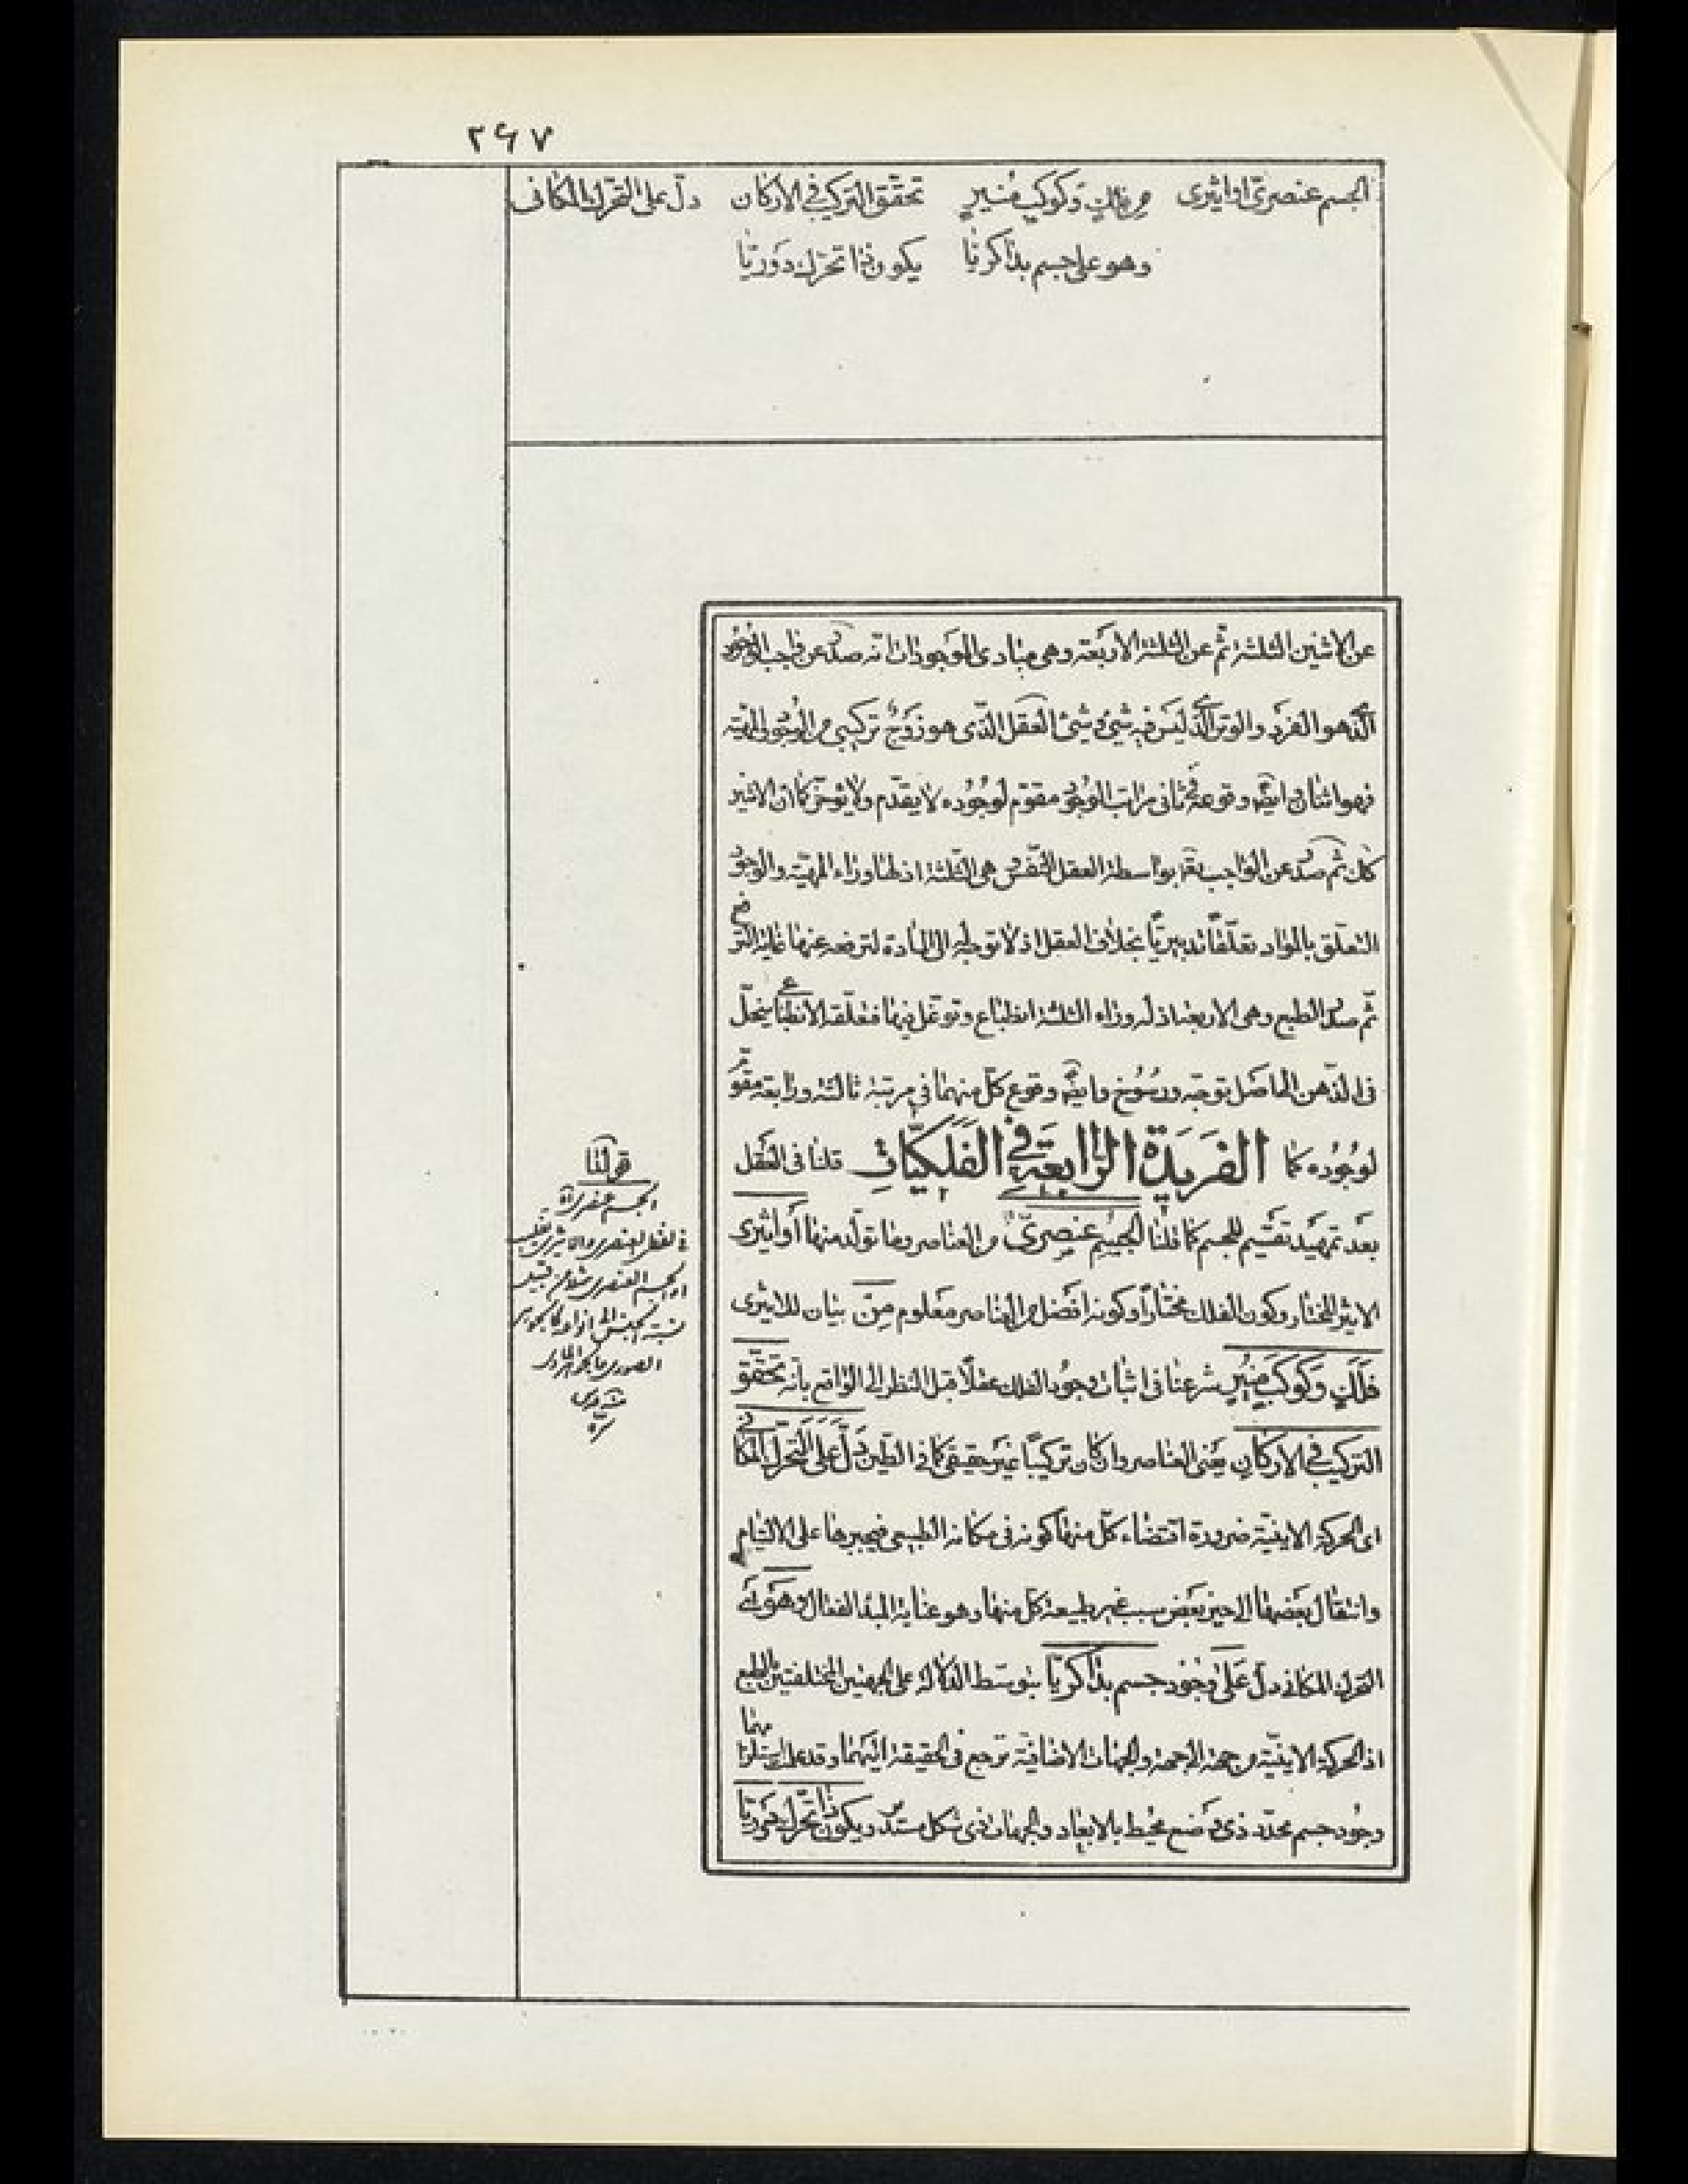 ٢٦٧
الجسم عنصريّ او اثيرى من فلك وكوكب منير تحقّق التركيب فى الاركان دلّ على التحرّك المكانى
وهو على جسم بدا كريّا يكون ذا تحرّك دوريّا
عن الاثنين الثلثة ثمّ عن الثلثة الاربعة وهى مبادى الموجودات انّه صدر عن واجب الوجود
الّذى هو الفرد والوتر الّذى ليس فيه شىء وشىء العقل الّذى هو زوج تركيبى من الوجود والمهيّة
فهو اثنان وايضا وقوعه فى ثانى مراتب الوجود مقوّم لوجوده لا يقدّم ولا يؤخّر كما ان الاثنين
كك ثم صدر عن الواجب تعا بواسطة العقل النّفس هى الثّلثة اذ لها وراء المهيّة والوجود
التعلّق بالمواد تعلّقا تدبيريّا بخلاف العقل اذ لا توجه له الى المادة لترفعه عنها غاية الترفع
ثمّ صدر الطبع وهى الاربعة اذ له وراء الثلثة انطباع وتوغّل فيها فتعلّقه الانطباعى ينحلّ
فى الذّهن الى اصل توجّه ورسوخ وايضا وقوع كلّ منهما فى مرتبة ثالثة ورابعة مقوّم
لوجوده كما الفَريدَة الرّابعَة فى الفَلكيّاتِ قلنا فى العقل
بعد تمهيد تقسيم للجسم كما قلنا الجسم عنصرىّ من العناصر وما تولّد منها او اثيرى
الاثير المختار وكون الفلك مختارا وكونه افضل من العناصر معلوم مِن بيان للاثيرى
فلك وكوكب منير شرعنا فى اثبات وجود الفلك عقلا قبل النظر الى الواقع بانّه تحقّق
التركيب فى الاركان يعنى العناصر وان كان تركيبا غير حقيقى كما فى الطّين دلّ على التحرّك المكانى
اى الحركة الاينيّة ضرورة اقتضاء كلّ منها كونه فى مكانه الطبيعى فيجبرها على الالتيام
وانتقال بعضها الى حيز بعض سبب غير طبيعة كل منها وهو عناية المبدا الفعال وهو اى
التحرك المكانى دلّ على وجود جسم بدا كريّا بتوسّط الدّلالة على الجهتين المختلفتين بالطبع
اذ الحركة الاينيّة من جهة الى جهة والجهات الاضافيّة ترجع فى الحقيقة اليهما وقد علمت استلزامهما
وجود جسم محدّد ذى وضع محيط بالابعاد والجرمانى ذى شكل مستدير ويكون ذا تحرّك دوريّا
قولنا
الجسم عنصرى اه